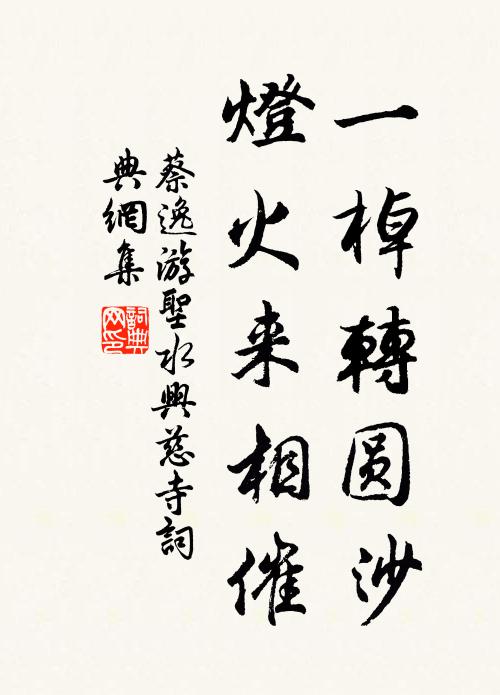 一棹轉圓沙
燈火来相催
蔡逸游聖水興慈寺詞
典網集
詞典网印